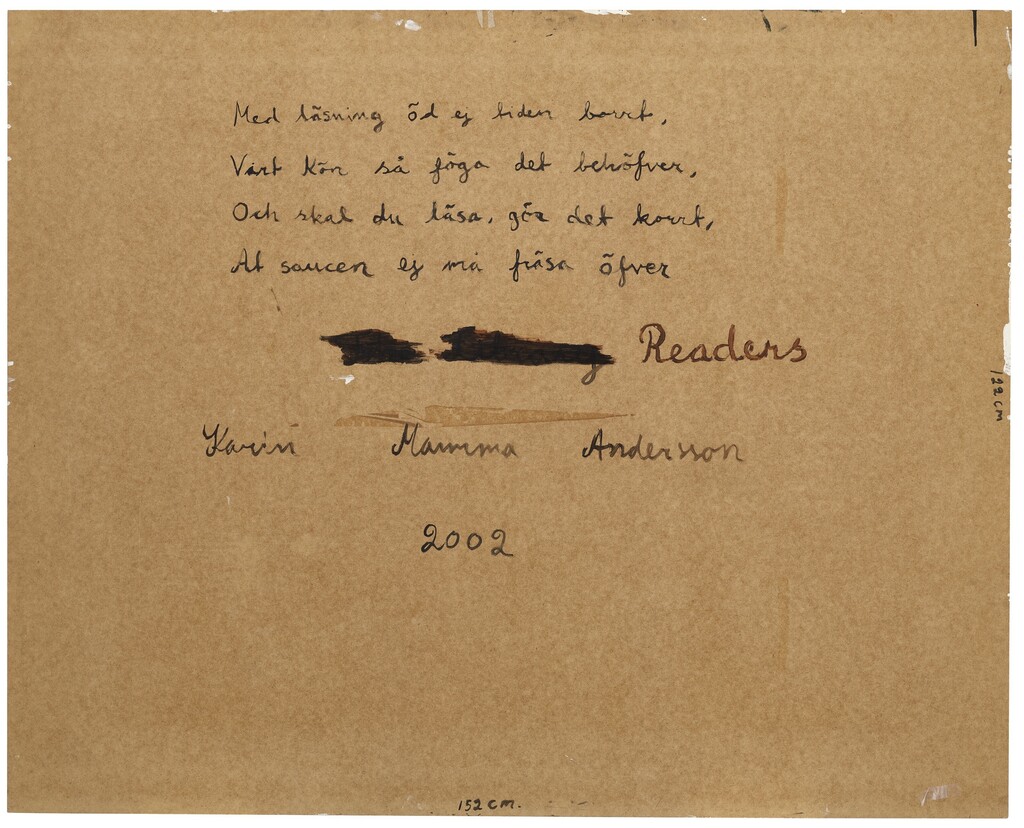 Med läsning öd ej tiden borrt,
Vårt kön så föga det behöfver,
Och skal du läsa, gör det korrt,
At saucen ej må fräsa öfver
Readers
Karin Mamma Andersson
2002
122 cm
152 cm.